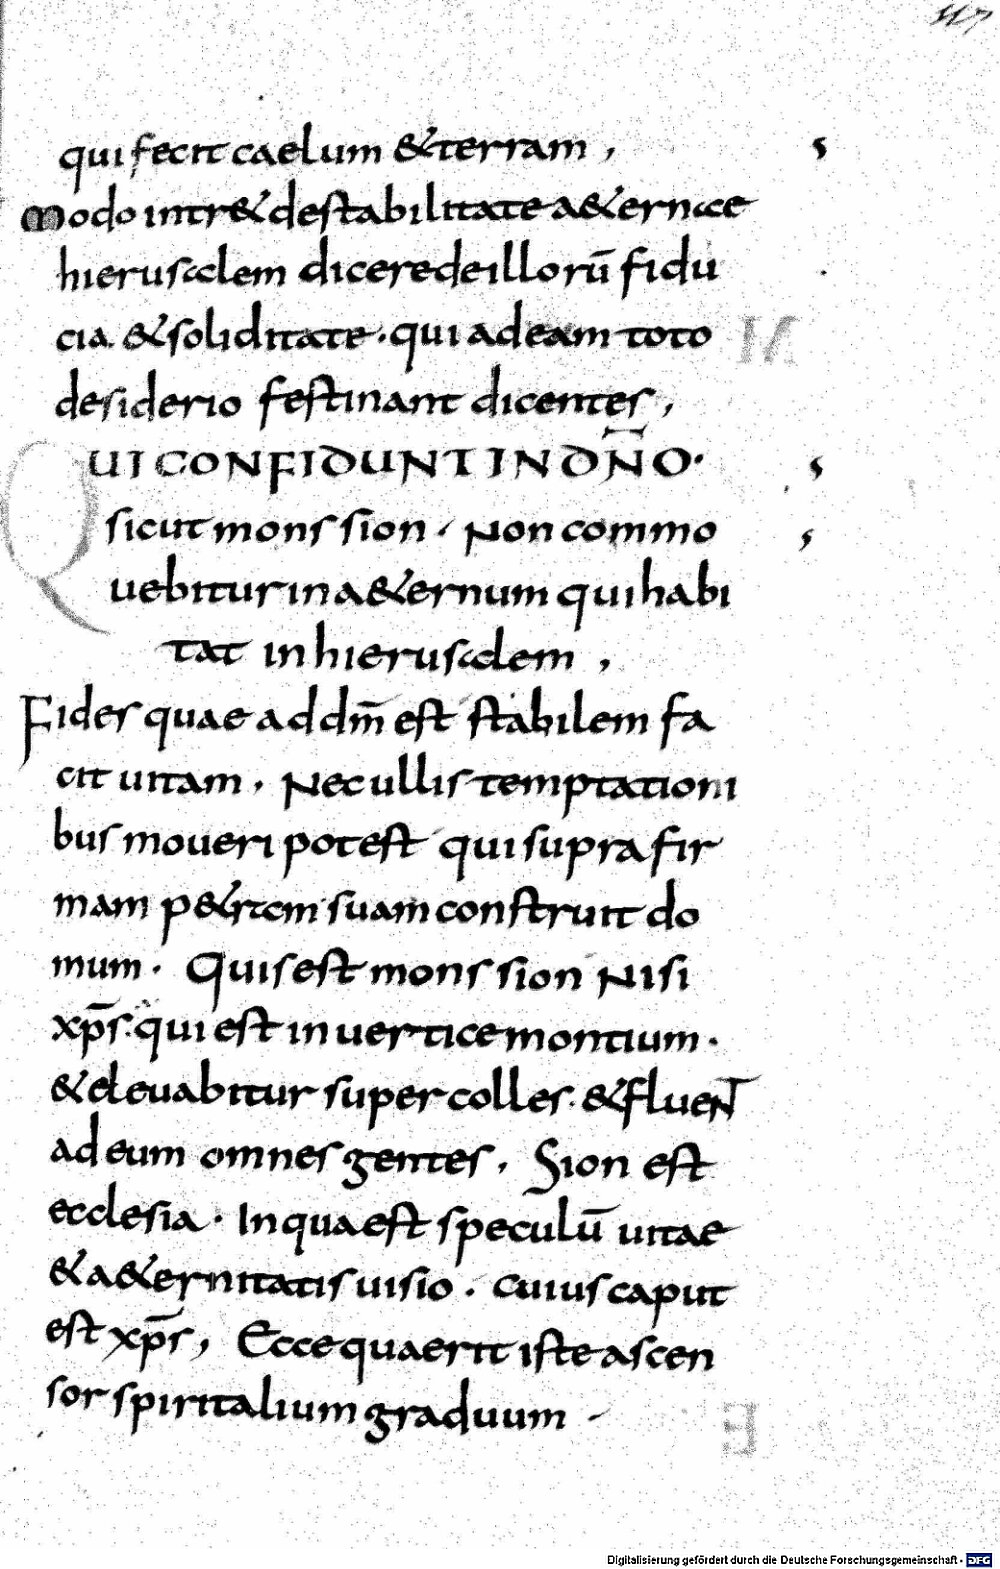 117
qui fecit caelum &terram,
modo intr& de stabilitate a&ernae
hierusalem dicere de illorū fidu
cia. & soliditate. qui ad eam toto
desiderio festinant dicentes,
QUI CONFIDUNT IN DN̄O.
sicut mons sion. Non commo
uebitur in a&ernum qui habi
tat in hierusalem,
Fides quae ad dm̄ est stabilem fa
cit uitam. Nec ullis temptationi
bus moueri potest qui supra fir
mam p&ram suam construit do
mum. Quis est mons sion Nisi
xp̄s. qui est in uertice montium.
& eleuabitur super colles. & fluent
ad eum omnes gentes. Sion est
ecclesia. In qua est speculū uitae
& a&ernitatis uisio. Cuius caput
est xp̄s, Ecce quaerit iste ascen
sor spiritalium graduum
Digitalisierung gefördert durch die Deutsche Forschungsgemeinschaft - DFG